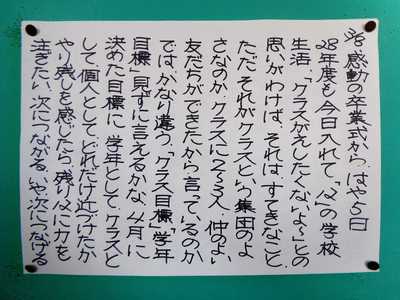 3/8感動の卒業式から、はや5日
28年度も今日入れて、「12」の学校
生活、「クラスがえしたくないよ〜」との
思いがわけば、それは、すてきなこと。
ただ、それがクラスという集団のよ
さなのか、クラスに2〜3人、仲のよい
友だちができたから言っているのか
では、かなり違う。「クラス目標」「学年
目標」見ずに言えるかな。4月に
決めた目標に、学年として、クラスと
して、個人として、どれだけ近づけたか
やり残しを感じたら、残り12に力を
注ぎたい。次につながる、や、次につなげる